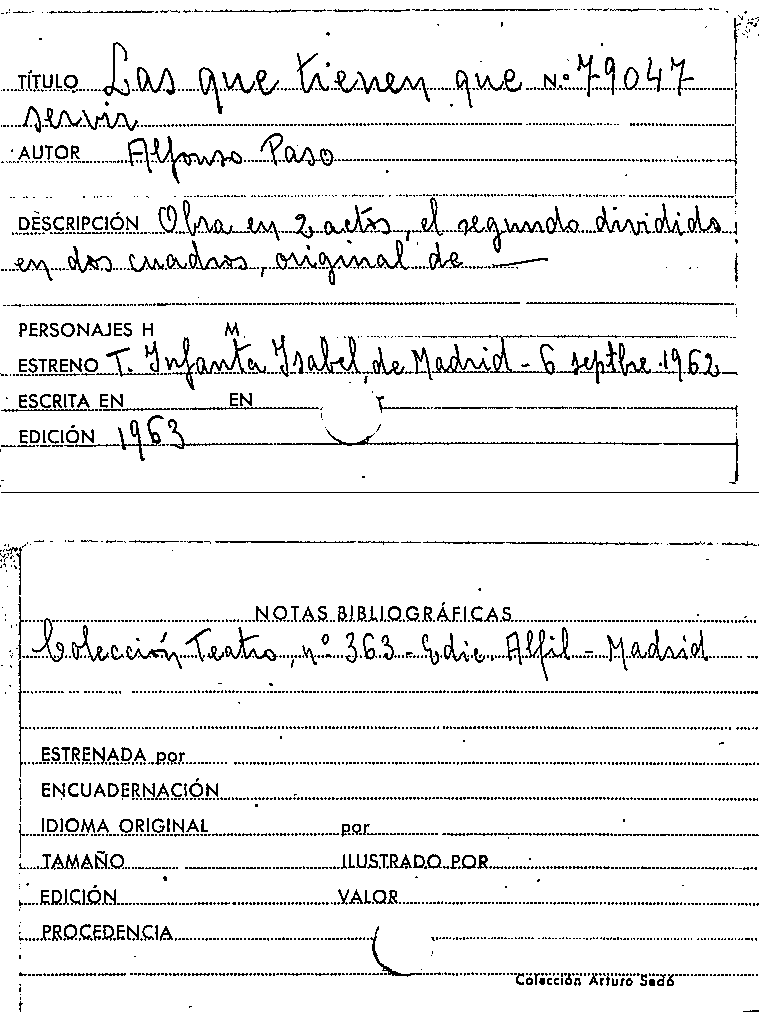 TÍTULO Las que tienen que N.º 79047
servir
AUTOR Alfonso Paso
DESCRIPCIÓN Obra en 2 actos, el segundo dividido
en dos cuadros, original de —
PERSONAJES H M
ESTRENO T. Infanta Isabel, de Madrid - 6 septbre. 1962
ESCRITA EN EN
EDICIÓN 1963
NOTAS BIBLIOGRÁFICAS
Colección Teatro, nº 363 - Edic. Alfil - Madrid
ESTRENADA por
ENCUADERNACIÓN
IDIOMA ORIGINAL por
TAMAÑO ILUSTRADO POR
EDICIÓN VALOR
PROCEDENCIA
Colección Arturo Sedó